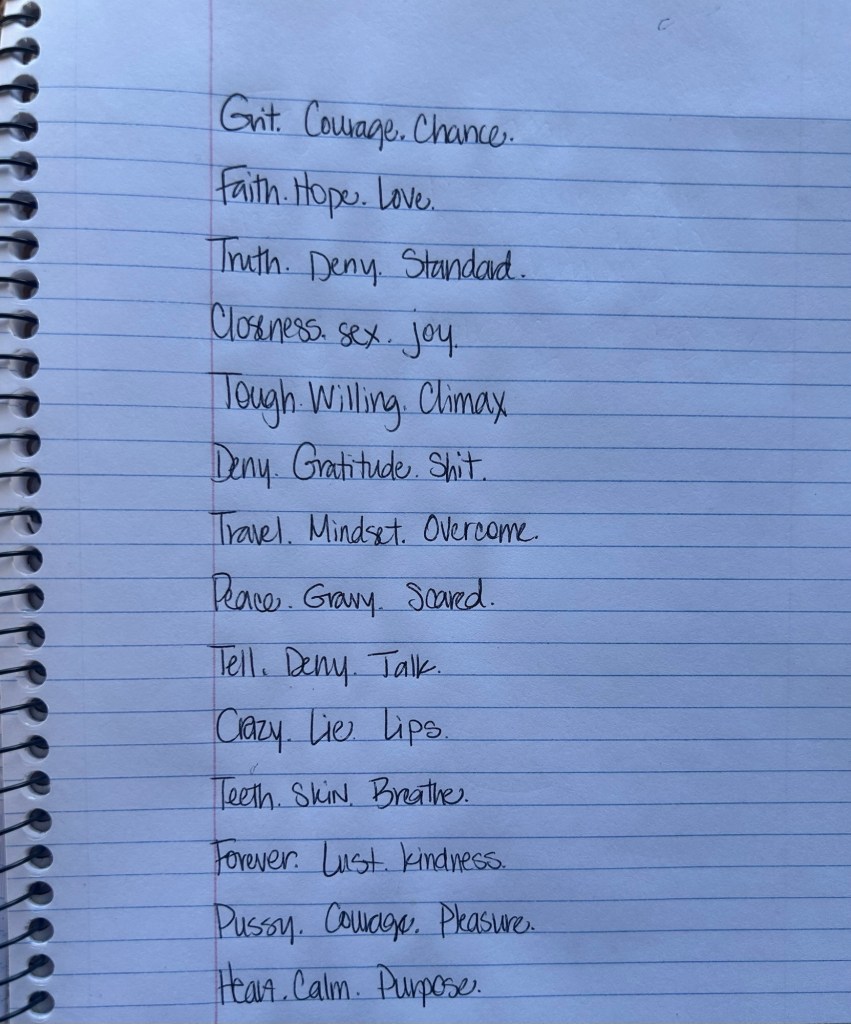 Grit. Courage. Chance.
Faith. Hope. Love.
Truth. Deny. Standard.
Closeness. sex. joy.
Tough. Willing. Climax
Deny. Gratitude. Shit.
Travel. Mindset. Overcome.
Peace. Gravy. Scared.
Tell. Deny. Talk.
Crazy. Lie. Lips.
Teeth. Skin. Breathe.
Forever. Lust. kindness.
Pussy. Courage. Pleasure.
Heart. Calm. Purpose.